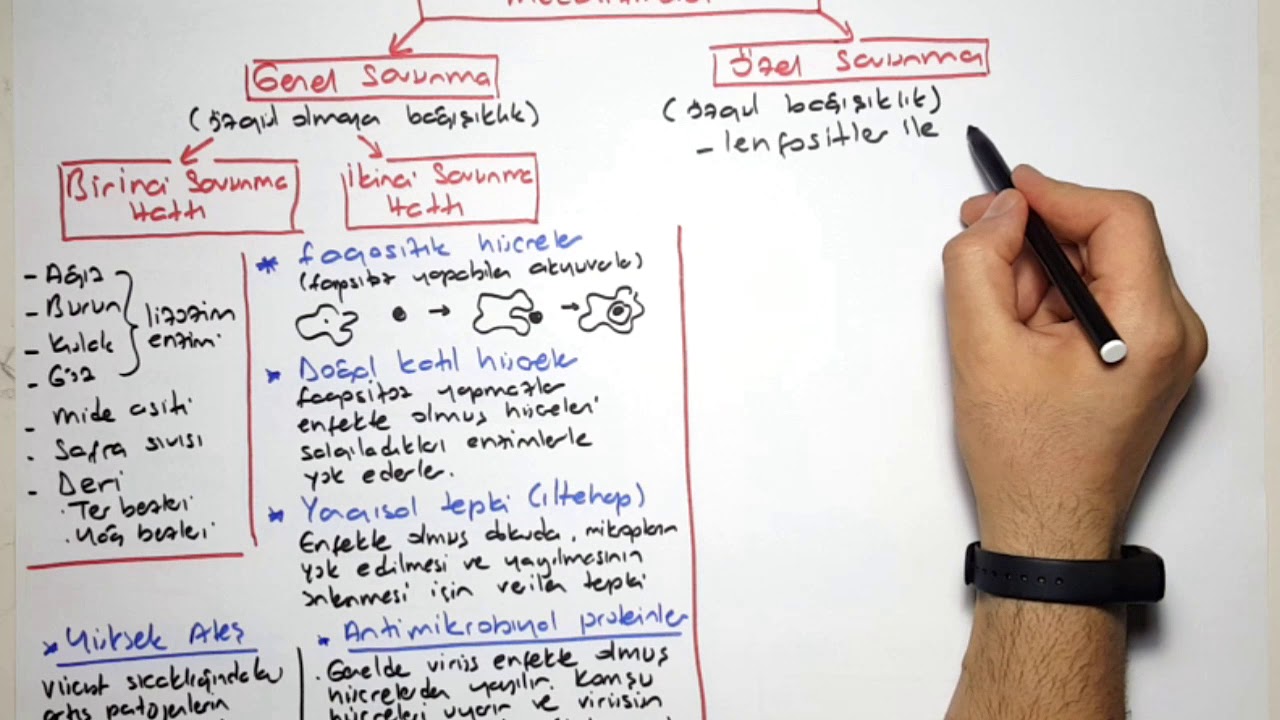 Genel Savunma
(özgül olmayan bağışıklık)
Birinci Savunma
Hattı
- Ağız
- Burun
- Kulak
- Göz
lizozim
enzimi
- mide asiti
- Safra sıvısı
- Deri
. Ter bezleri
. Yağ bezleri
İkinci Savunma
Hattı
* fagositik hücreler
(fagositoz yapabilen akyuvarlar)
* Doğal katil hücreler
fagositoz yapmazlar
enfekte olmuş hücreleri
salgıladıkları enzimlerle
yok ederler.
* Yangısal tepki (iltehap)
Enfekte olmuş dokuda, mikropların
yok edilmesi ve yayılmasının
önlenmesi için verilen tepki
* Yüksek Ateş
vücut sıcaklığındaki
artış patojenlerin
* Antimikrobiyal proteinler
. Genelde virüs enfekte olmuş
hücrelerden yayılır. Komşu
hücreleri uyarır ve virüsün
Özel Savunma
(özgül bağışıklık)
- lenfositler ile